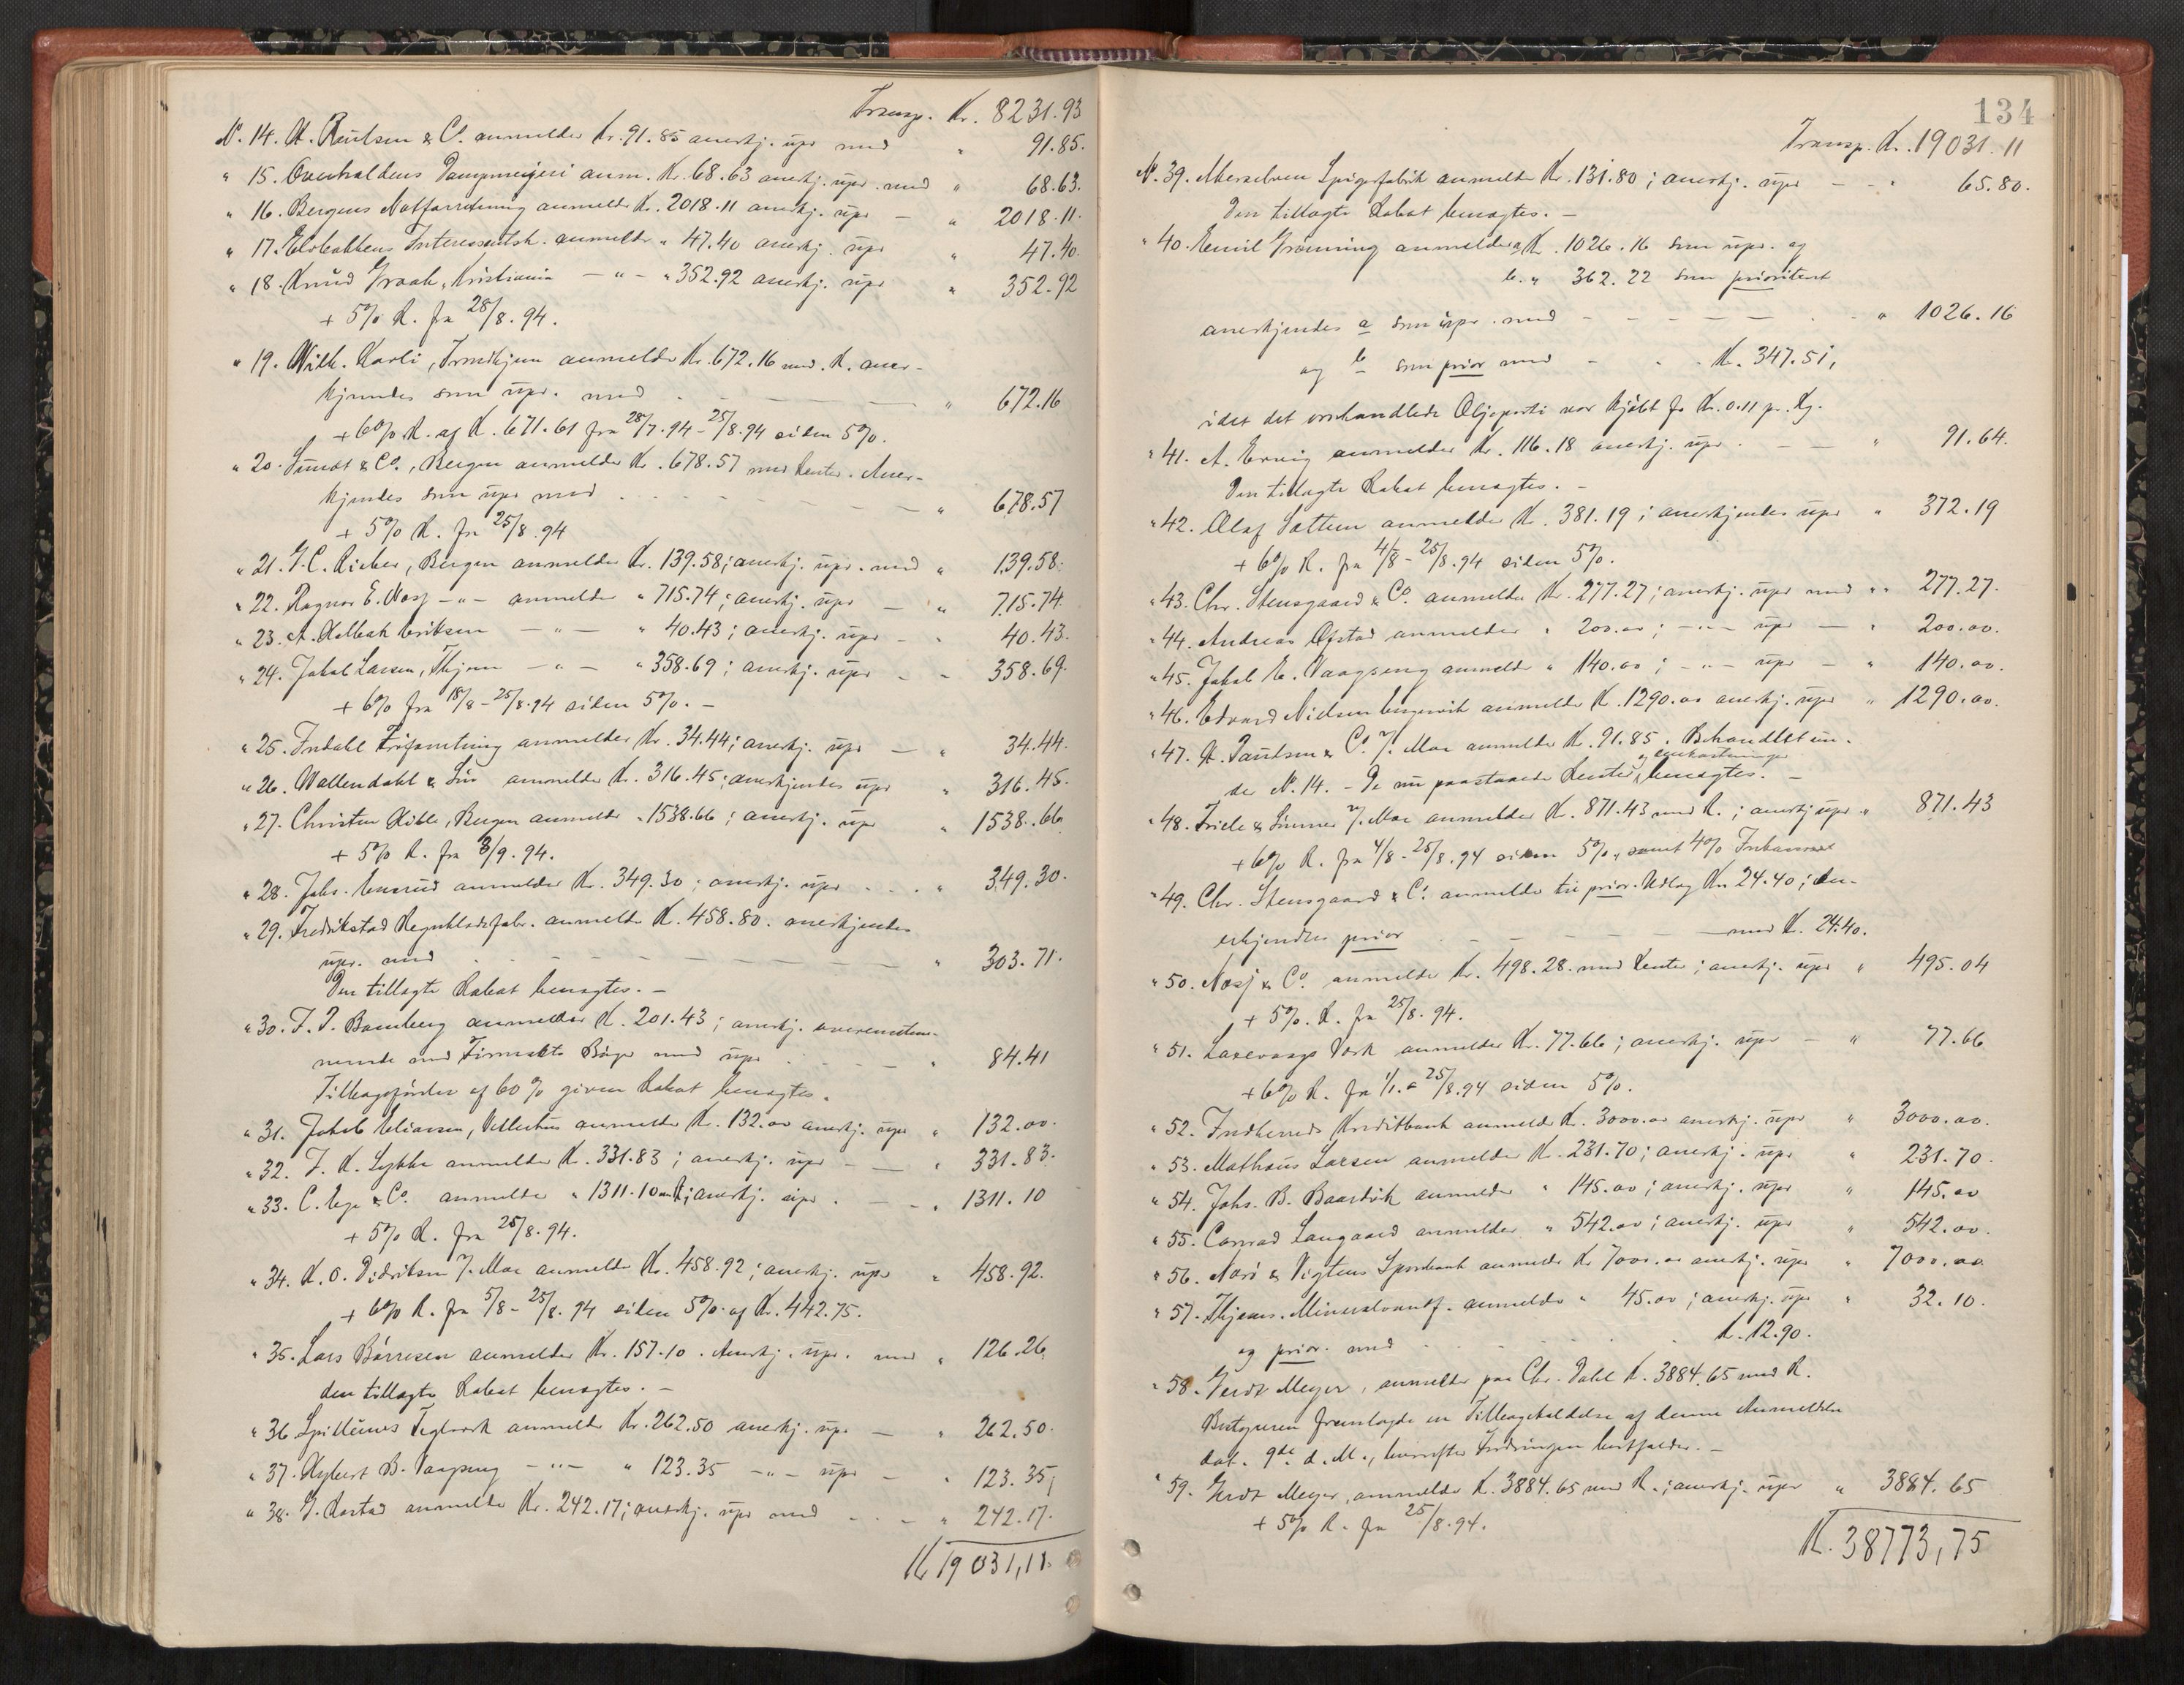 Transp. Kr. 8231.93
N. 14. H. Paulsen & Co. anmelder Kr. 91.85 anerkj. upr. med " 91.85.
" 15. Overhaldens Dampmeieri anm. Kr. 68.63 anerkj. upr. med " 68.63.
" 16. Bergens Notforretning anmelder Kr. 2018.11 anerkj. upr — " 2018.11.
" 17. Interessentsk. anmelder " 47.40 anerkj. upr " 47.40.
" 18. Knud Graah, Kristiania — " — " 352.92 anerkj. upr " 352.92
+ 5% R. fra 25/8.94.
" 19. Wilh. Karli, Trondhjem anmelder Kr. 672.16 med R. aner-
kjendes som upr. med " 672.16
+ 6% R. af K. 671.61 fra 28/7.94 - 25/8.94 siden 5%.
" 20. Sundt & Co., Bergen anmelder Kr. 678.57 med Renter. Aner-
kjendes som upr med " 678.57
+ 5% R. fra 25/8.94
" 21. G. C. Rieber, Bergen anmelder Kr. 139.58; anerkj. upr. med " 139.58.
" 22. Ragnar E. Mosj — " — anmelder " 715.74; anerkj. upr — " 715.74
" 23. A. Holbæk Eriksen — " — " 40.43; anerkj. upr — " 40.43.
" 24. Jakob Larsen, Thjem — " — " 358.69; anerkj. upr — " 358.69.
+ 6% fra 18/8 - 25/8.94 siden 5%. —
" 25. anmelder Kr. 34.44; anerkj. upr — " 34.44.
" 26. Wallendahl & Søn anmelder Kr. 316.45; anerkjendes upr " 316.45.
" 27. Christen Kible, Bergen anmelder " 1538.66; anerkj. upr " 1538.66
+ 5% R. fra 3/9.94.
" 28. Johs. anmelder Kr. 349.30; anerkj. upr . . . " 349.30.
" 29. Fredrikstad anmelder K. 458.80. anerkjendes
upr. med " 303.71.
Den tillagte Rabat benægtes. —
" 30. J. J. Bamberg anmelder K. 201.43; anerkj. overensstem-
mende med Firmaets Bøger med upr " 84.41
Tilbageførelse af 60% given Rabat benægtes.
" 31. Jakob Eliassen, anmelder Kr. 132.00 anerkj. upr " 132.00.
" 32. J. K. Lykke anmelder K. 331.83; anerkj. upr — " 331.83.
" 33. C. & Co. anmelder " 1311.10 m R; anerkj. upr. — " 1311.10
+ 5% R. fra 25/8.94.
" 34. K. O. Didriksen 7. Mae anmelder Kr. 458.92; anerkj. upr " 458.92.
+ 6% R. fra 5/8 - 25/8.94 siden 5% af Kr. 442.75.
" 35. Lars Børresen anmelder Kr. 157.10. Anerkj. upr. med " 126.26
den tillagte Rabat benægtes. —
" 36 Spillums Teglverk anmelder Kr. 262.50 anerkj. upr — " 262.50.
" 37. B. Vaagseng — " — " 123.35 — " — upr — " 123.35,
" 38. G. Rostad anmelder Kr. 242.17; anerkj. upr med . . — " 242.17.
Kr 19031,11.
134
Transp. K. 19031.11
N. 39. Spigerfabrik anmelder Kr. 131.80; anerkj. upr — " 65.80.
Den tillagte Rabat benægtes. —
" 40. Emil Grønning anmelder a, K. 1026.16 som upr. og
b. " 362.22 som prioritert
anerkjendes a som upr. med — " 1026.16
og b som prior med . . . K. 347.51,
idet det omhandlede Oljeparti var kjøbt for Kr. 0.11 pr. Kg.
" 41. A. anmelder Kr. 116.18 anerkj. upr. — " 91.64.
Den tillagte Rabat benægtes. —
" 42. Olaf Sættem anmelder K. 381.19; anerkjendes upr " 372.19
+ 6% R. fra 4/8 - 25/8.94 siden 5%.
" 43. Chr. Stensgaard & Co. anmelder Kr. 277.27; anerkj. upr med " 277.27.
" 44. Andreas Opstad anmelder " 200.00; — " — upr — " 200.00.
" 45. Jakob E. Vaagseng anmelder " 140.00; — " — upr — " 140.00.
" 46. Edvard Nielsen anmelder K. 1290.00 anerkj. upr " 1290.00.
" 47. H. Paulsen & Co. 7. Mae anmelder Kr. 91.85. Behandlet un-
og omkostninger
der N. 14. — De nu paastaaede Renter benægtes. —
" 48. Friele & Sønner 7. Mae anmelder K. 871.43 med R.; anerkj upr " 871.43
+ 6% R. fra 4/8 - 25/8.94 siden 5%, samt 4% Inkasso
" 49. Chr. Stensgaard & Co. anmelder til prior. Udlæg Kr. 24.40; an-
erkjendes prior — med K. 24.40.
" 50. Mosj & Co. anmelder Kr. 498.28 med Renter; anerkj. upr " 495.04
+ 5% R. fra 25/8.94.
" 51. Laxevaags Værk anmelder Kr. 77.66; anerkj. upr — " 77.66
+ 6% R. fra 1/1. - 25/8.94 siden 5%.
" 52. Indherreds Kreditbank anmelder K. 3000.00 anerkj. upr " 3000.00.
" 53. Mathæus Larsen anmelder Kr. 231.70; anerkj. upr " 231.70.
" 54. Johs. B. Baardvik anmelder " 145.00; anerkj. upr " 145.00
" 55. Conrad Langaard anmelder " 542.00; anerkj. upr " 542.00.
" 56. Nærø & Vigtens Sparebank anmelder Kr 7000.00 anerkj. upr " 7000.00
" 57. Thjems. Mineralvandf. anmelder " 45.00; anerkj. upr " 32.10.
og prior. med . . . K. 12.90.
" 58. Gerdt Meyer, anmelder paa Chr. Dahl K. 3884.65 med R.
Bestyreren fremlagde en Tilbagekaldelse af denne Anmeldelse
dat. 9de d. M., hvorefter Fordringen bortfalder. —
" 59. Gerdt Meyer, anmelder K. 3884.65 med R.; anerkj. upr " 3884.65
+ 5% R. fra 25/8.94.
K. 38773,75